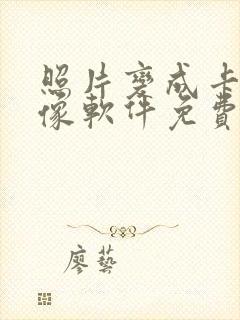 照片变成卡
像軟件免費
廖藝